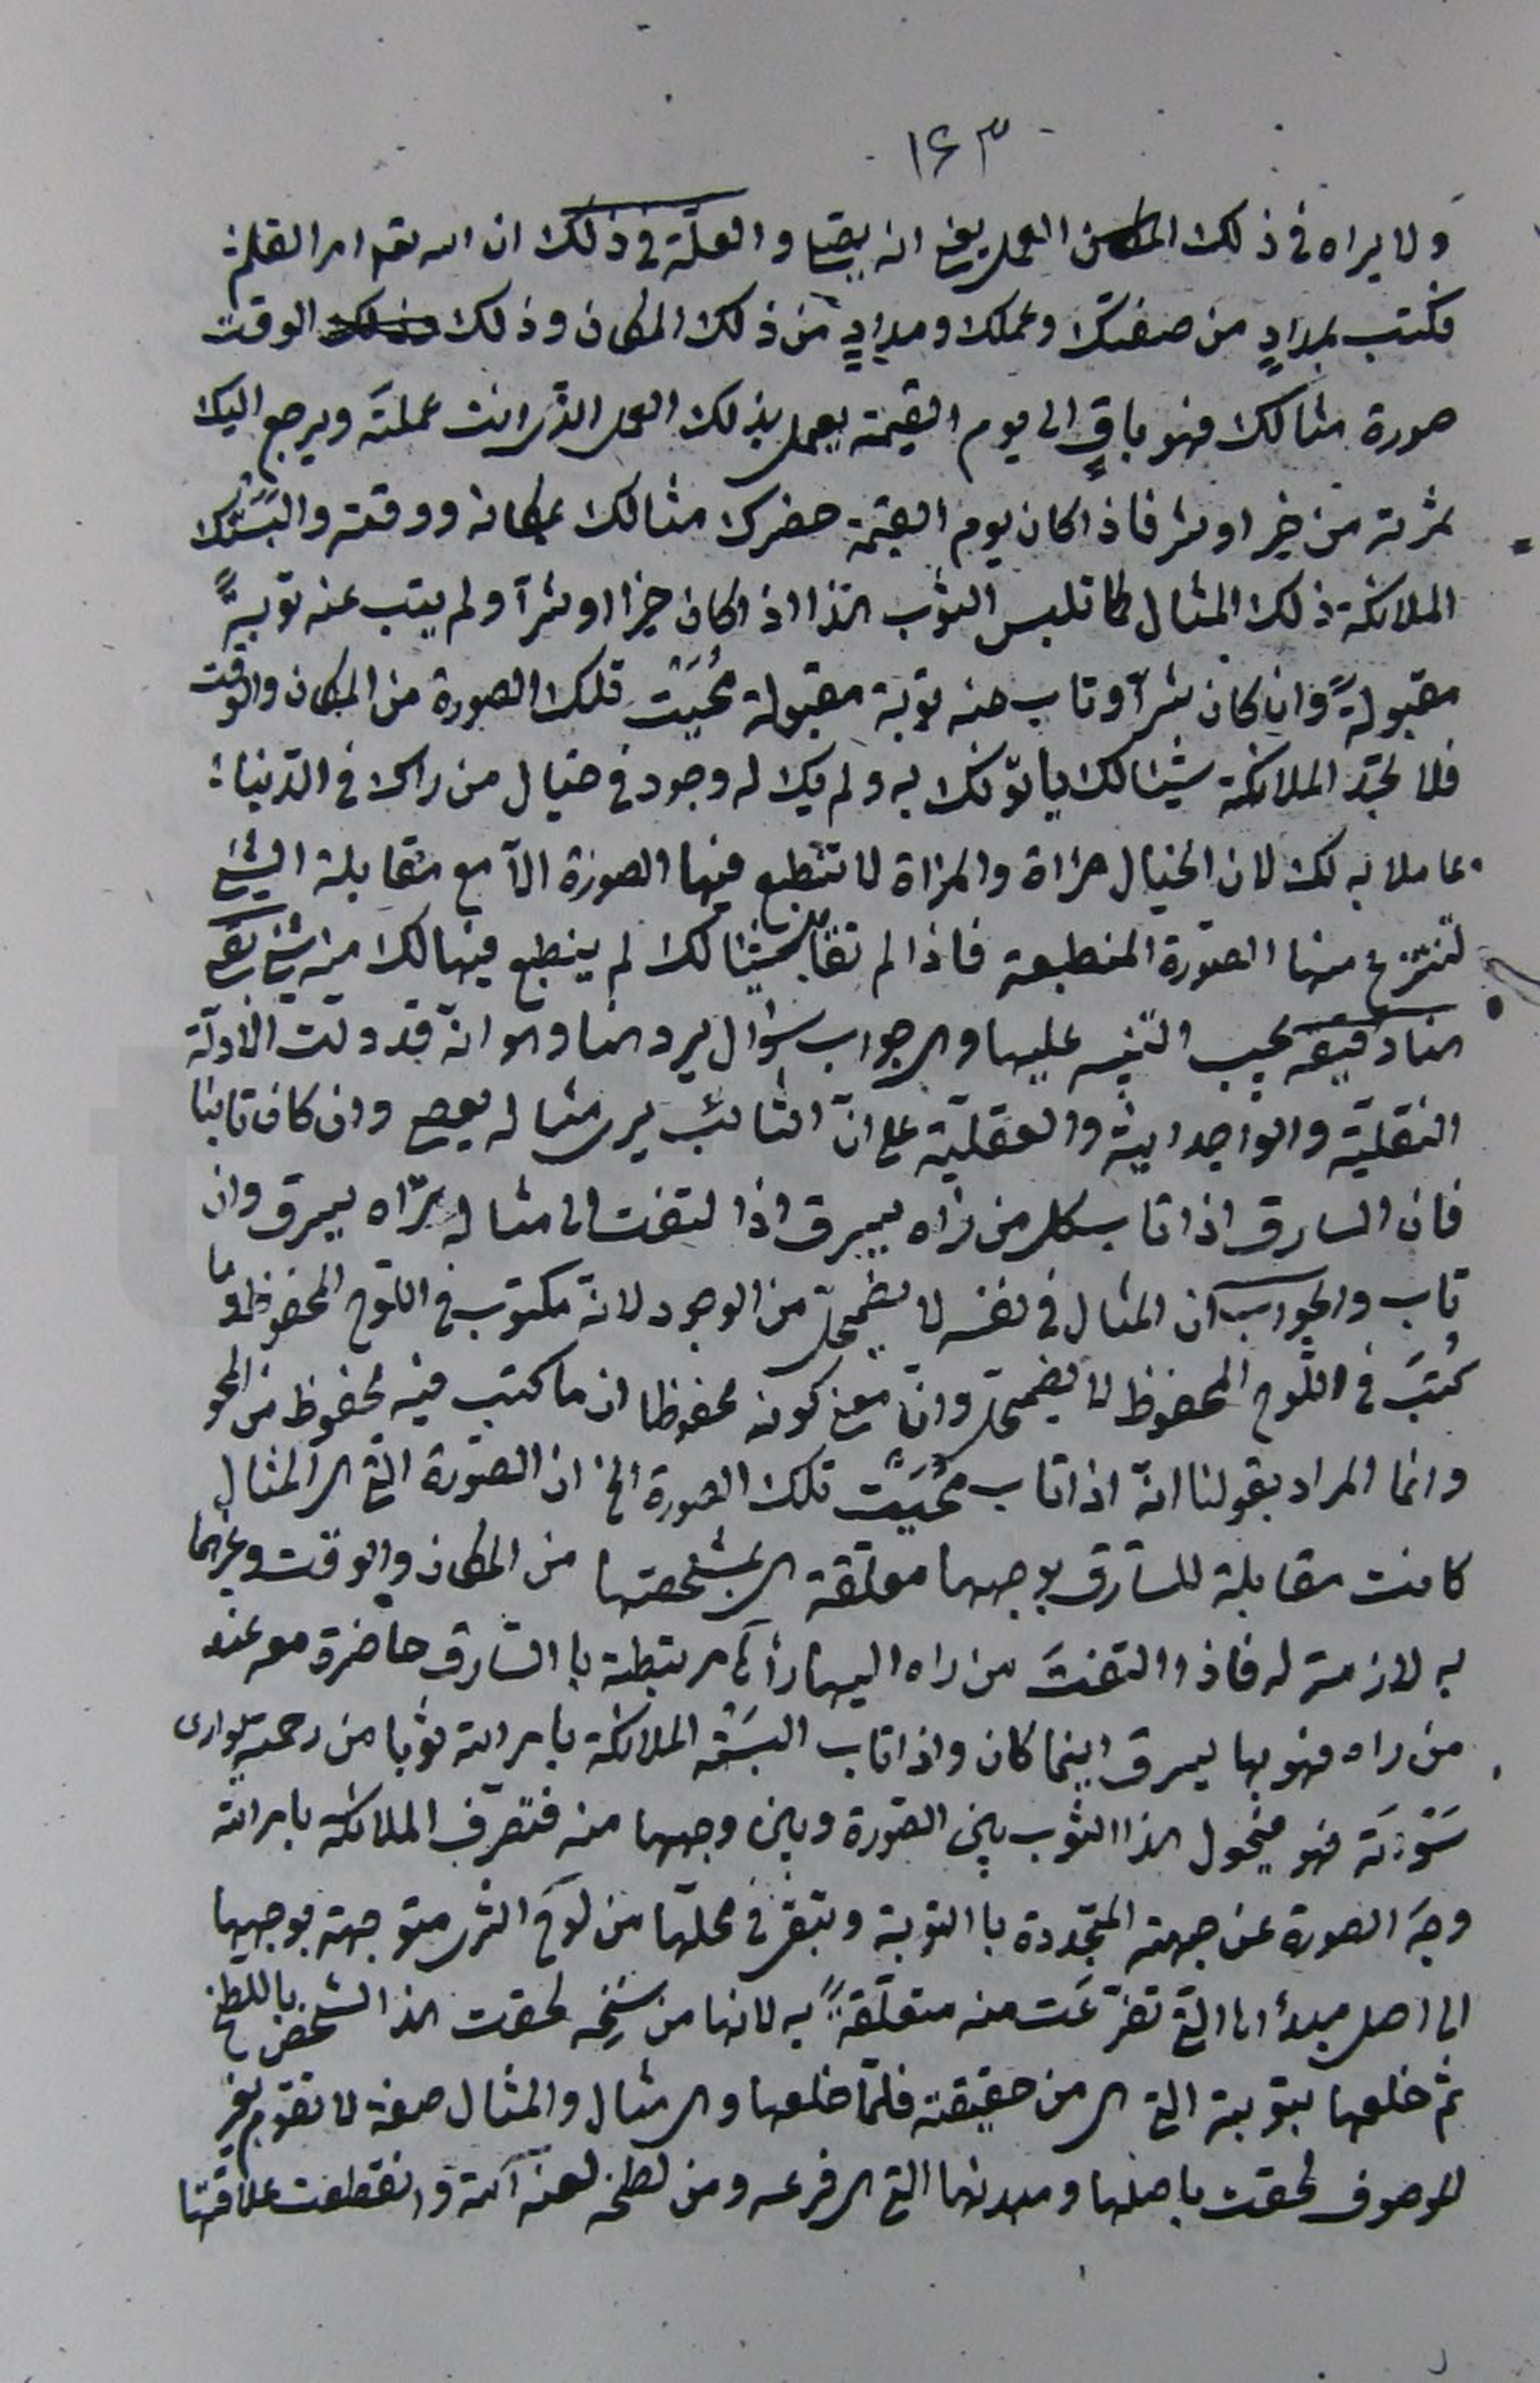 ١٤٣
ولا يراه في ذلك العمل يعني انه يقيا والعلّة في ذلك ان الله تعم امر القلم
فكتب بمدادٍ من صفتك وعملك ومدادٍ من ذلك المكان وذلك الوقت
صورة مثالك فهو باقٍ الى يوم القيمة يعمل بذلك العمل الذي انت عملتَه ويرجع اليك
ثمرته من خير او شر فاذا كان يوم القيمة حضرك مثالك بمكانه ووقته والبَسَتك
الملائكة ذلك المثال كما تلبس الثوب هذا اذا كان خيرا او شرّا ولم يتب عنه توبةً
مقبولةً وان كان شرّا وتاب منه توبة مقبولة مُحِيَت تلك الصورة من المكان والوقت
فلا تجد الملائكة شيئا لك ياتونك به ولم يك له وجود في خيال من راك في الدنيا
عاملا به لك لان الخيال مراة والمراة لا تنطبع فيها الصورة الّا مع مقابلة الشيء
لتنتزع منها الصّورة المنطبعة فاذا لم تقابل شيئا لك لم ينطبع فيها لك منه شيء بقي
هنا دقيقة يجب التنبيه عليها وهي جواب سؤال يرد هنا وهو انه قد دلّت الادلّة
النقليّة والواجدانية والعقليّة على انّ التائب يرى مثاله يعصي وان كان تائبا
فان السارق اذا تاب كل من راه يسرق اذا التفت الى مثاله يراه يسرق وان
تاب والجواب ان المثال في نفسه لا يضمحلّ من الوجود لانه مكتوب في اللّوح المحفوظ وما
كُتِبَ في اللّوح المحفوظ لا يضمحلّ وانّ معنى كونه محفوظا ان ما كتب فيه محفوظ من المحو
وانما المراد بقولنا انّه اذا تاب مُحِيَت تلك الصورة الخ ان الصّورة التي هي المثال
كانت مقابلة للسّارق بوجهها معلّقة هي بمشخصتها من المكان والوقت وغيرهما
به لازمة له فاذا التفتَ من راه اليها رأها مرتبطة با السّارق حاضرة معه عند
من راه فهو بها يسرق اينما كان واذا تاب البسَته الملائكة بامر الله ثوبا من رحمته يوارى
سَوْءتَه فهو فيحول هذا الثوب بين الصّورة وبين وجهها منه فتصرّف الملائكة بامر الله
وجهَ الصورة عن جهته المتجددة با التوبة وتبقى في محلّها من لوح الشرى متوجهة بوجهها
الى اصل مبدأها التي تفرّعَت منه متعلّقةً به لانها من سنخه لحقت هذا الشخص باللطخ
ثم خلعها بتوبته التي هي من حقيقته فلمّا خلعها وهي مثال والمثال صفة لا تقوم بغير
الموصوف لحقت باصلها ومبدئها التي هي فرعه ومن لطخه لعنه الله وانقطعت علاقتها